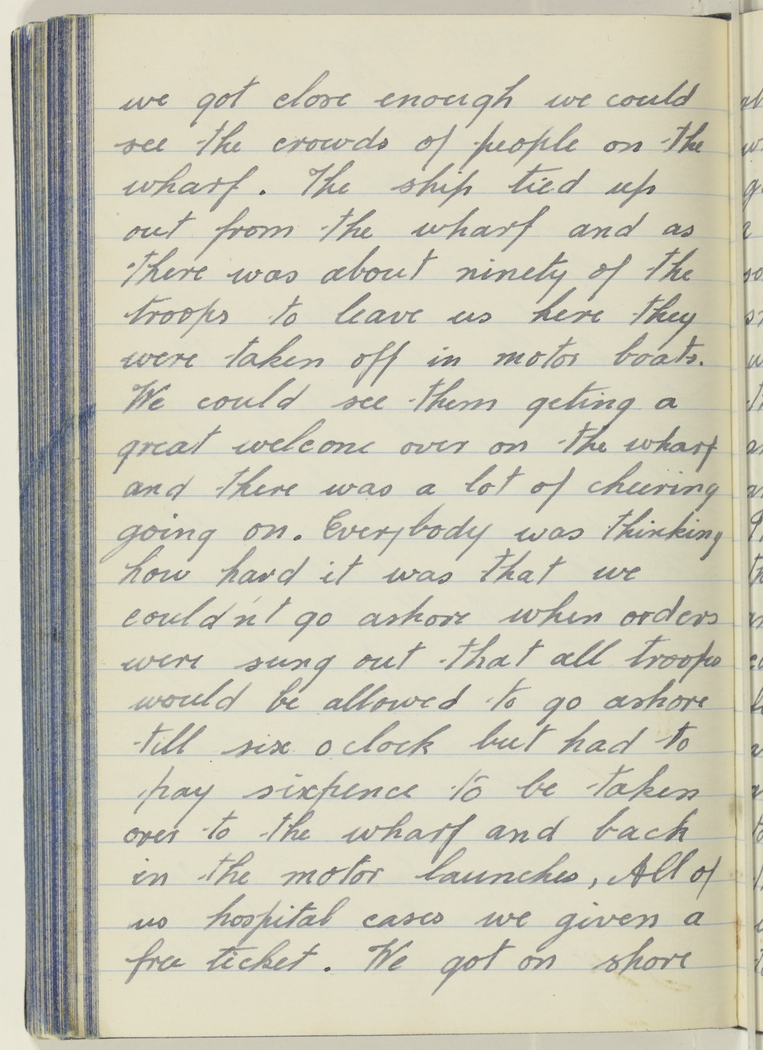 we got close enough we could
see the crowds of people on the
wharf. The ship tied up
out from the wharf and as
there was about ninety of the
troops to leave us here they
were taken off in motor boats.
We could see them geting a
great welcome over on the wharf
and there was a lot of cheering
going on. Everybody was thinking
how hard it was that we
could'nt go ashore when orders
were sung out that all troops
would be allowed to go ashore
till six oclock but had to
pay sixpence to be taken
over to the wharf and back
in the motor launches, All of
us hospital cases we given a
free ticket. We got on shore